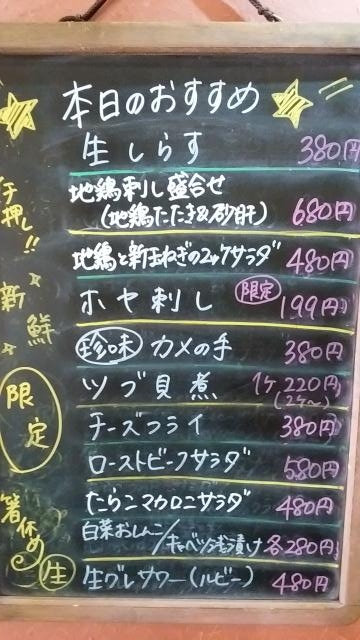 本日のおすすめ
生しらす 380円
地鶏刺し盛合せ
(地鶏たたき&砂肝) 680円
地鶏と新玉ねぎのユッケサラダ 480円
ホヤ刺し 限定 199円
珍味 カメの手 380円
ツブ貝煮 1ケ 220円
(2ケ〜)
チーズフライ 380円
ローストビーフサラダ 580円
たらこマカロニサラダ 480円
白菜おしんこ/キャベツ浅漬け 各280円
生グレサワー(ルビー) 480円
押し!!
新鮮
限定
箸休め
生